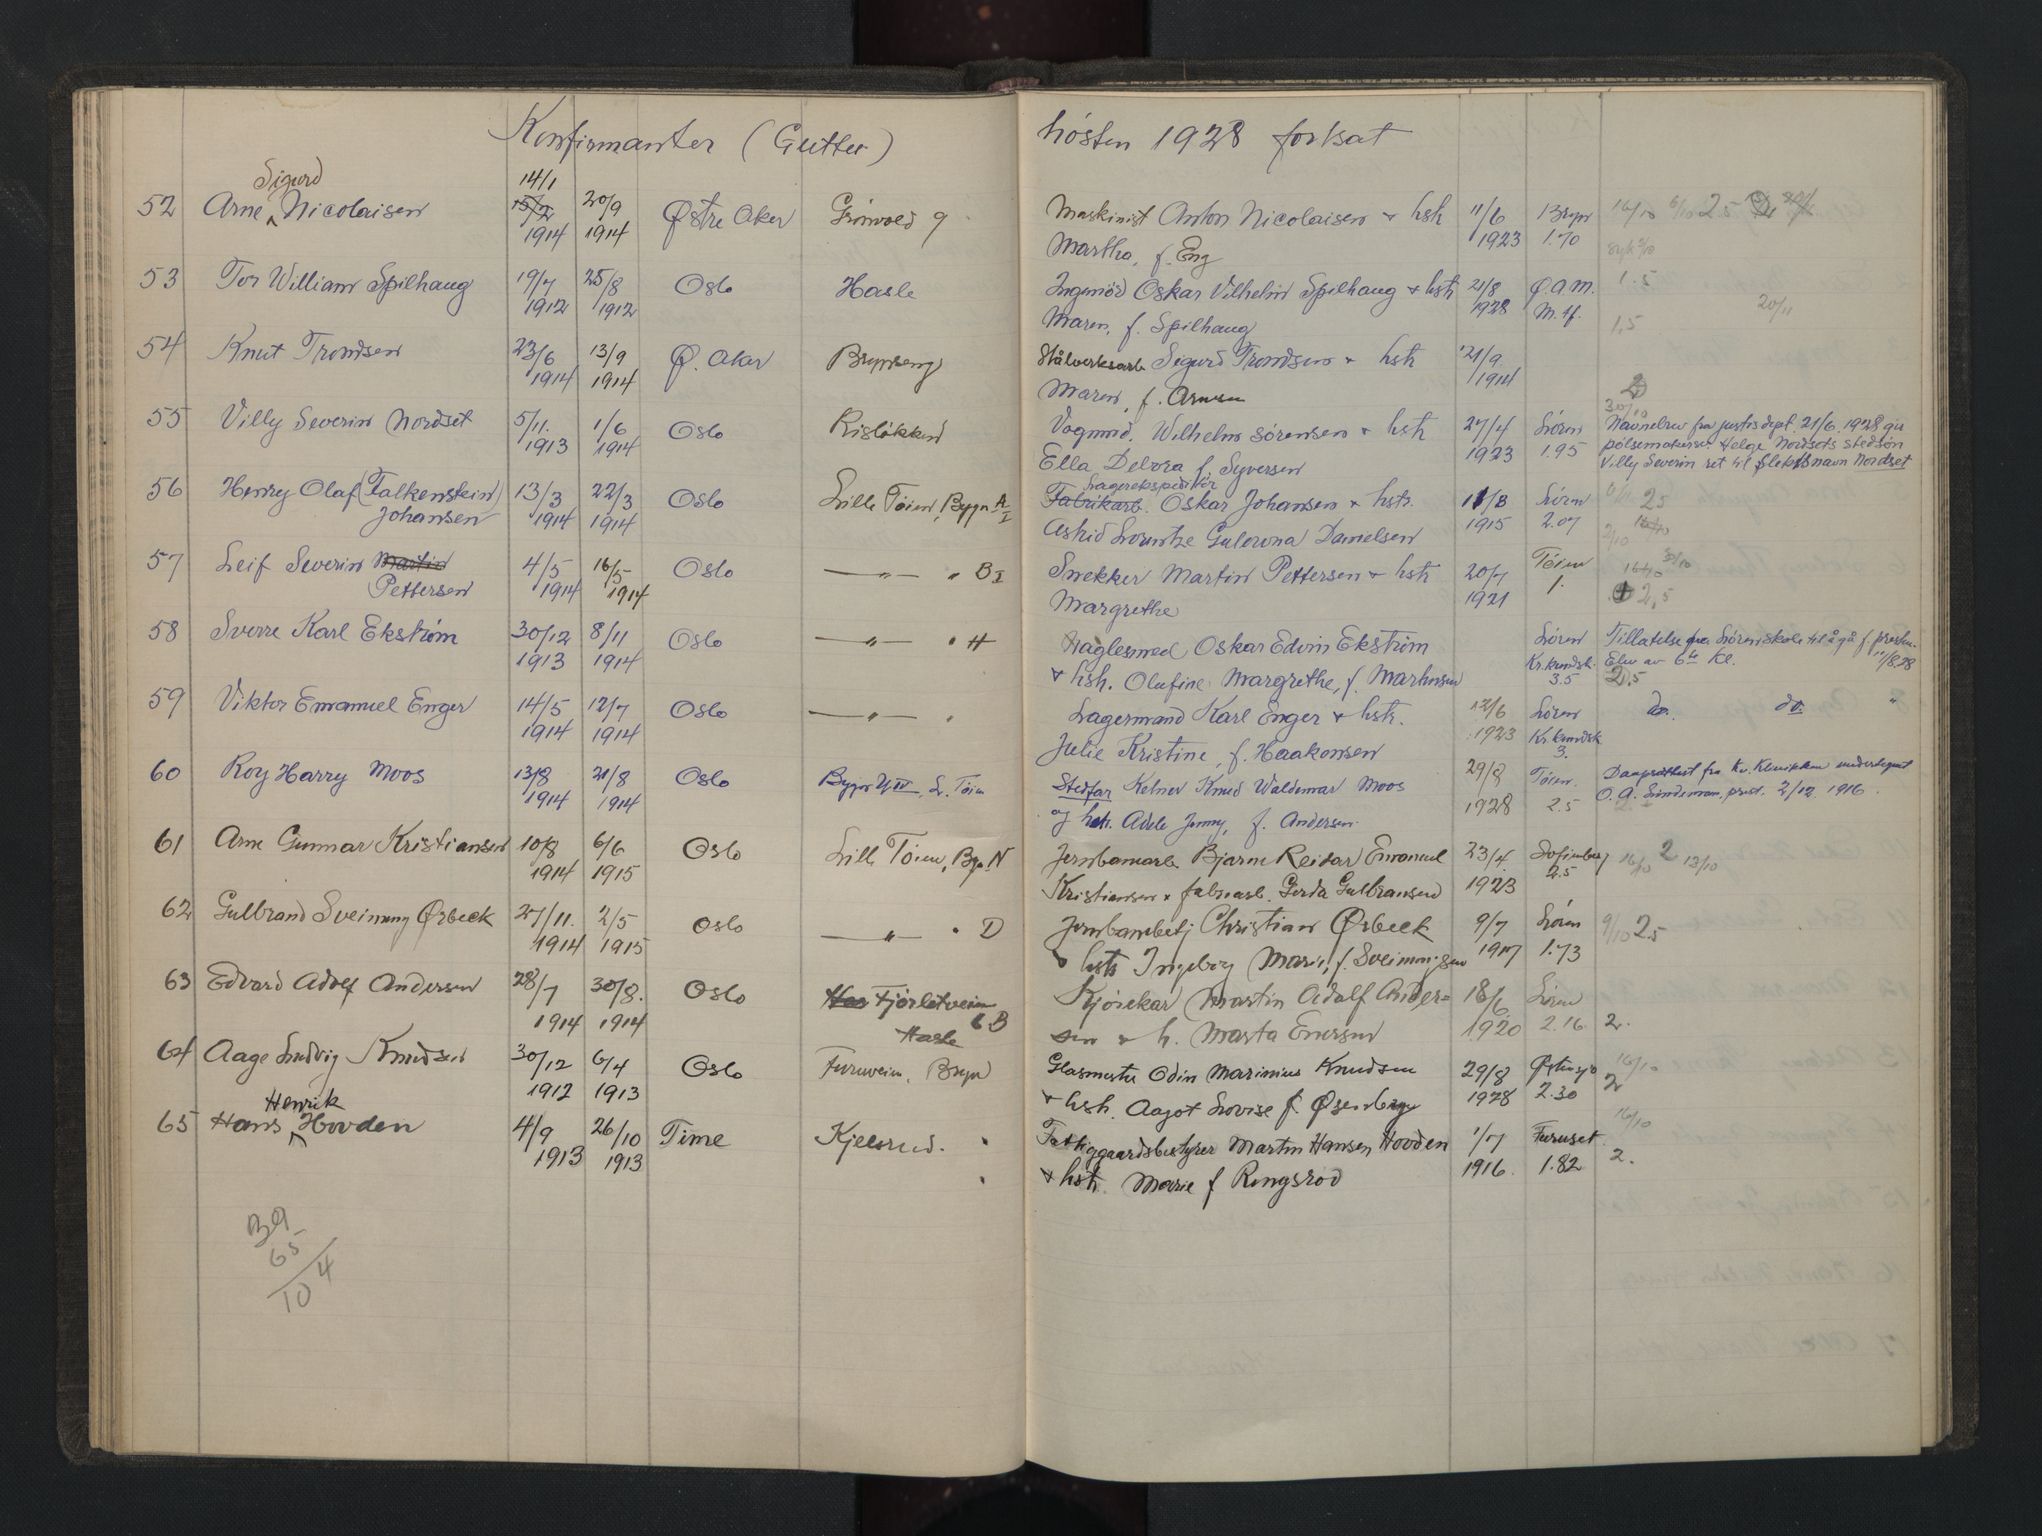 Konfirmanter (Gutter) høsten 1928 fortsat
Sigurd 14/1
52 Arne Nicolaisen 15/2 20/9 Østre Aker Grönvold 9 Maskinist Anton Nicolaisen + hstr 11/6 Bryn 16/10 6/10 2.5
1914 1914 Martha, f. Eng 1923 1.70
53 Tor William Spilhaug 19/7 25/8 Oslo Hasle Ingeniör Oskar Vilhelm Spilhaug + hstr 21/8 Ø.A.M. 1.5
1912 1912 Maren, f. Spilhaug 1928 M. 20/11
1,5
54 Knut Trondsen 23/6 13/9 Ø. Aker Brynseng Stålverksarb. Sigurd Trondsen + hstr 21/9
1914 1914 Maren, f. Arnesen 1914 2
30/10
55 Villy Severin Nordset 5/11. 1/6 Oslo Risløkken Vognmd. Wilhelm Sörensen + hstr 27/4 Lören Navnebrev fra justisdept. 21/6. 1928 gir
1913 1914 Ella Debora f. Syversen 1923 1.95 pölsemaker Helge Nordsets stedsön
Villy Severin ret til slektsnavn Nordset
56 Henry Olaf (Falkenstein) 13/3 22/3 Oslo Lille Töien, Bygn. A I Lagerekspeditör
Johansen 1914 1914 Fabrikarb. Oskar Johansen + hstr. 11/8 Lören 2.5
Astrid Lorentze Gulowna Danielsen 1915 2.07 2/10
57 Leif Severin Martin 4/5 16/5 Oslo —„— „ B I Snekker Martin Pettersen + hstr 20/7 Töien 16/10 30/10
Pettersen 1914 1914 Margrethe 1921 1. 2,5
58 Sverre Karl Ekstrøm 30/12 8/11 Oslo —„— „ H Naglesmed Oskar Edvin Ekstrøm Lören Tillatelse fra Lörenskole til å gå f. presten.
1913 1914 + hstr. Olufine Margrethe, f. Marhinsen Kr.kundsk. Elev av 6te Kl. 11/8.28
3.5 2.5
59 Viktor Emanuel Enger 14/5 12/7 Oslo —„— „ Lagermand Karl Enger + hstr. 12/6 Lören do. do. "
1914 1914 Julie Kristine, f. Haakonsen 1923 Kr.kundsk
3.
60 Roy Harry Moos 13/8 21/8 Oslo Bygn. IV, L. Töien Stedfar Kelner Knud Waldemar Moos 29/8 Töien. Daapsattest fra Kv. Klinikken undertegnet
1914 1914 og hstr. Adele Jenny, f. Andersen 1928 2.5 O. A. Lindeman, prest. 2/12. 1916.
61 Arne Gunnar Kristiansen 10/8 6/6 Oslo Lille Töien, Bygn. N Jernbanearb. Bjarne Reidar Emanuel 23/4 Sofienberg 16/10 2 13/10
1914 1915 Kristiansen + fabrarb. Gerda Gulbransen 1923 2.5
62 Gulbrand Sveinung Ørbeck 27/11. 2/5 Oslo —„— „ D Jernbanebetj Christian Ørbeck 9/7 Lören 9/10 2.5
1914 1915 + hstr Ingeborg Marie, f. Sveinungsen 1917 1.73
63 Edvard Adolf Andersen 28/7 30/8. Oslo Has Fjörlitveien 6 B Kjörekar Martin Adolf Ander= 18/6 Lören
1914 1914 Hasle sen + h. Marta Enersen 1920 2.16 2.
64 Aage Ludvig Knudsen 30/12 6/4 Oslo Furuveien, Bryn Glasmester Odin Marinius Knudsen 29/8 Østensjö 16/10
1912 1913 + hstr. Aagot Lovise f. Øsenberg 1928 2.30 2
Henrik
65 Hans Hovden 4/9 26/10 Time Kjelsrud. Fattiggaardsbestyrer Martin Hansen Hovden 1/7 Furuset 16/10
1913 1913 + hstr. Marie f Ringsröd 1916. 1.82 2.
39
65
104